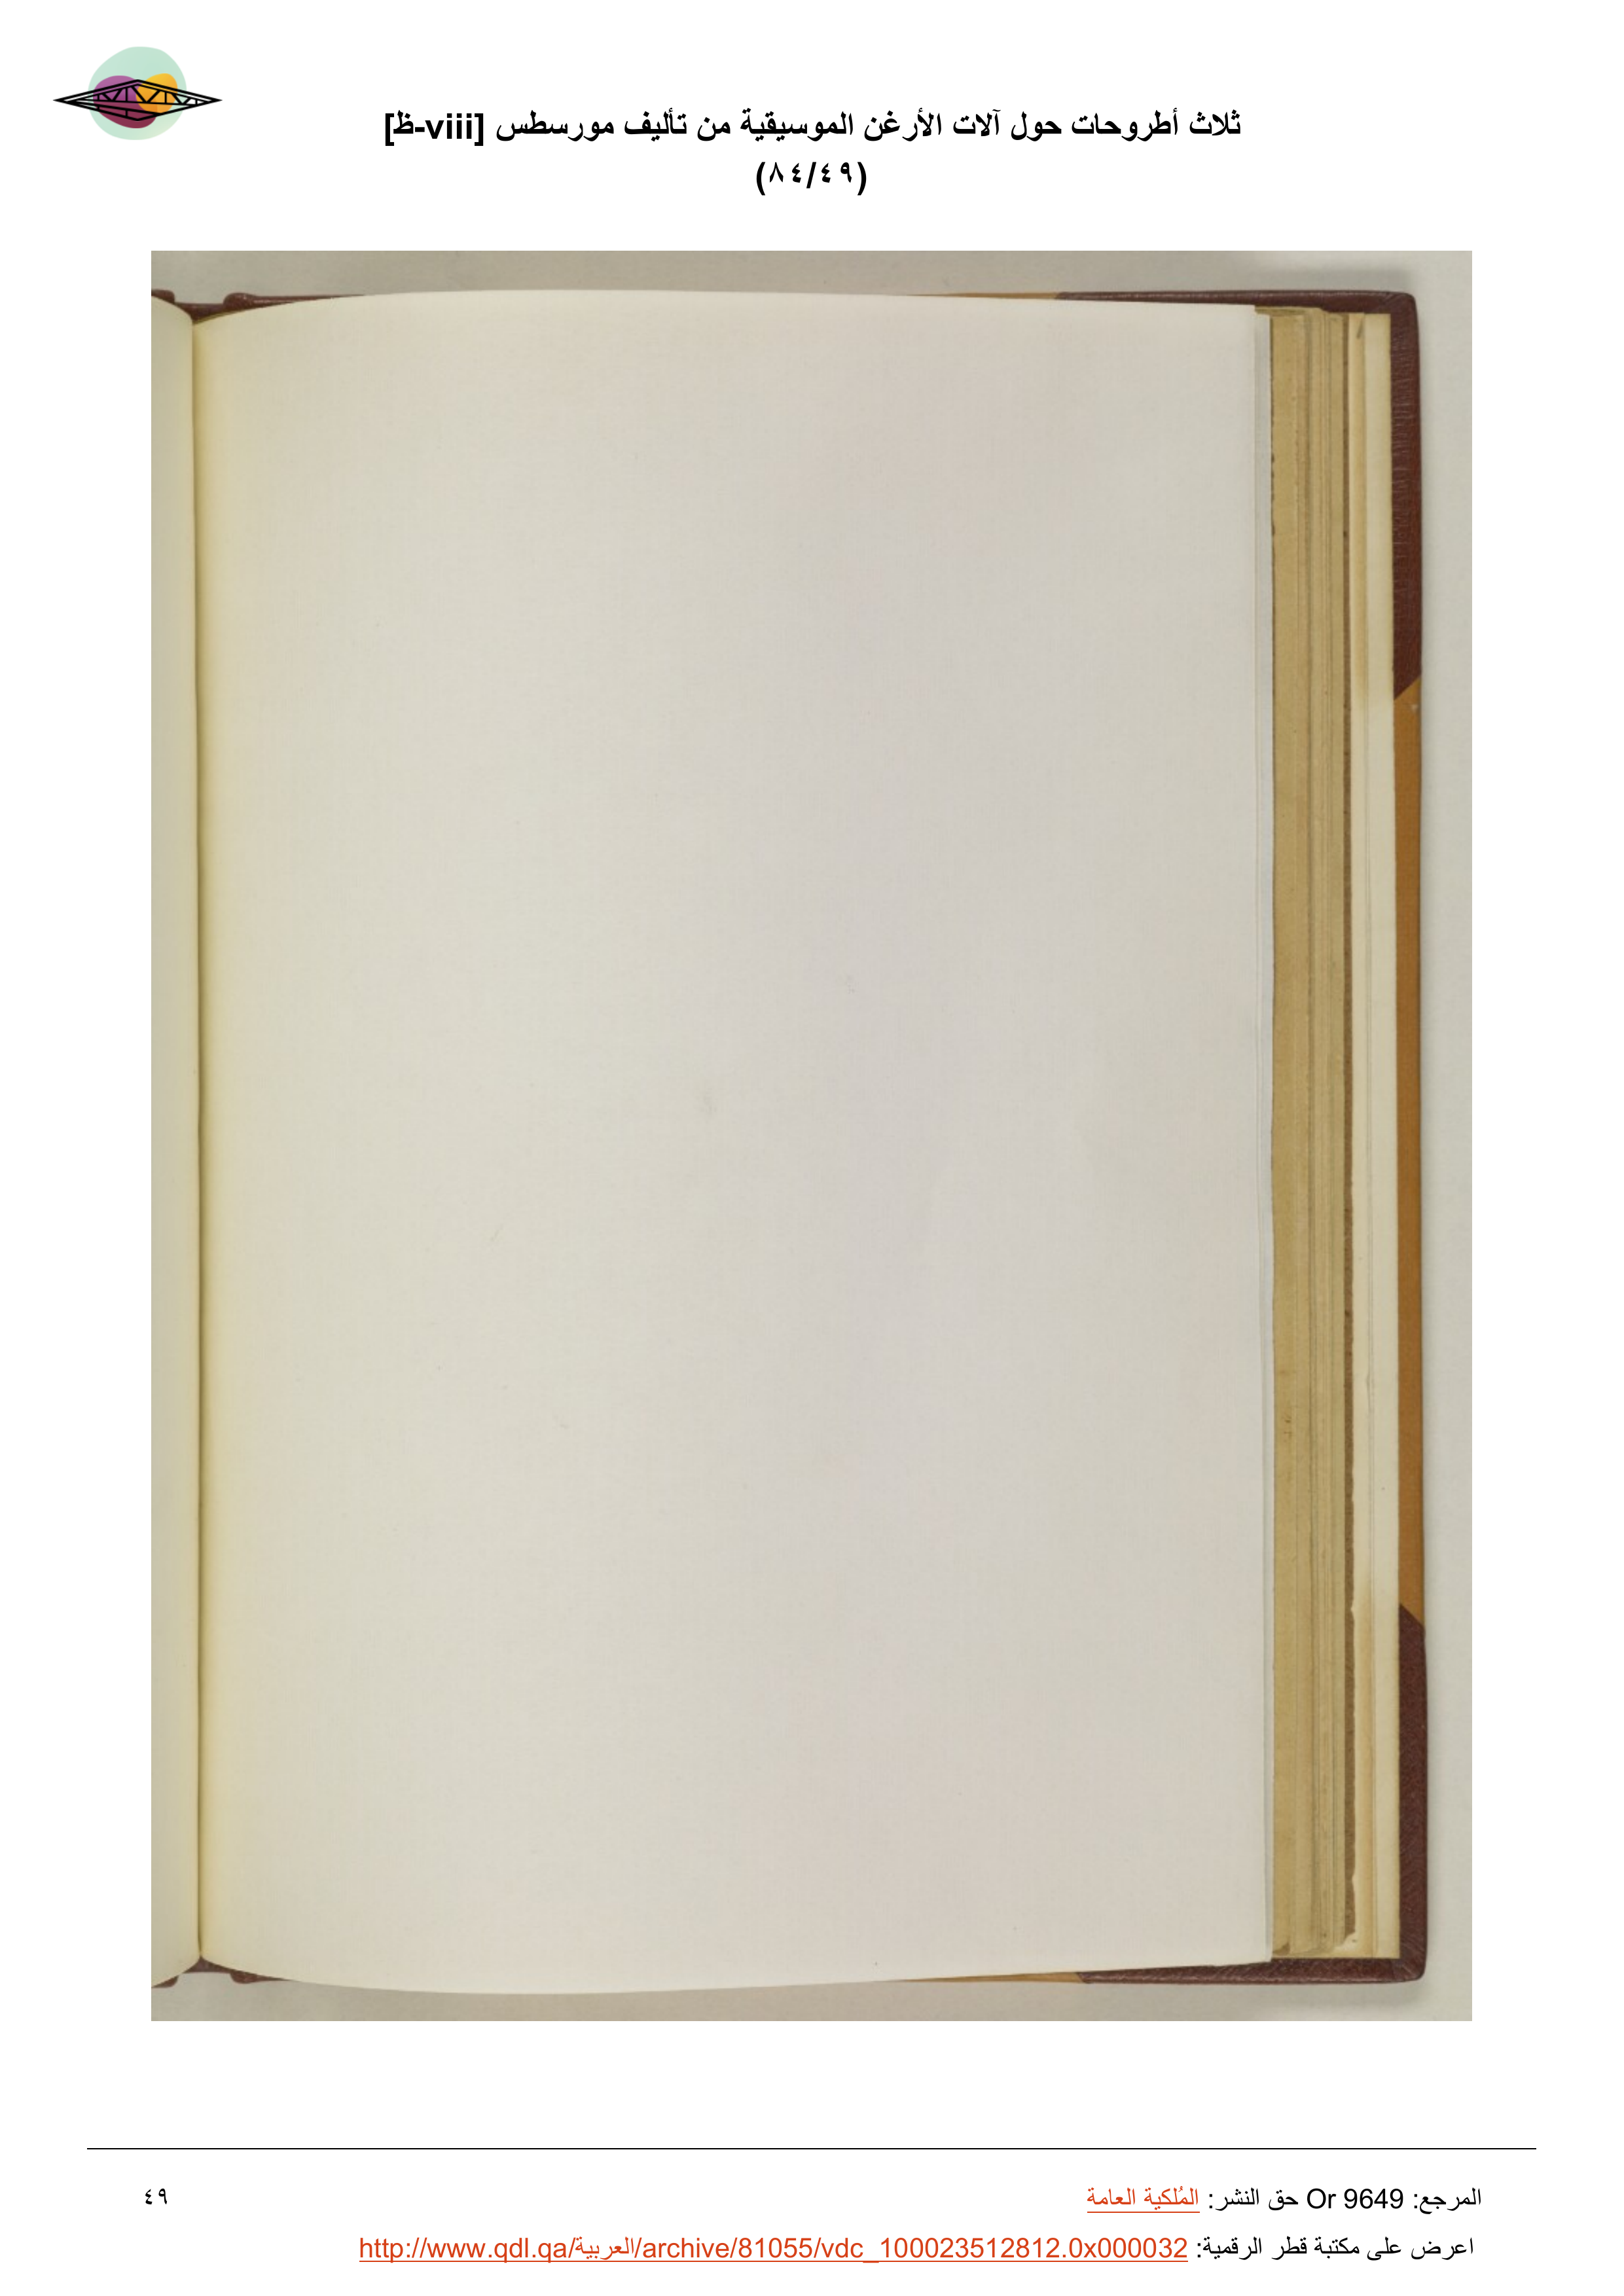 ثلاث أطروحات حول آلات الأرغن الموسيقية من تأليف مورسطس [viii-ظ]
(٨٤/٤٩)
المرجع: Or 9649 حق النشر: المُلكية العامة
٤٩
اعرض على مكتبة قطر الرقمية: http://www.qdl.qa/العربية/archive/81055/vdc_100023512812.0x000032